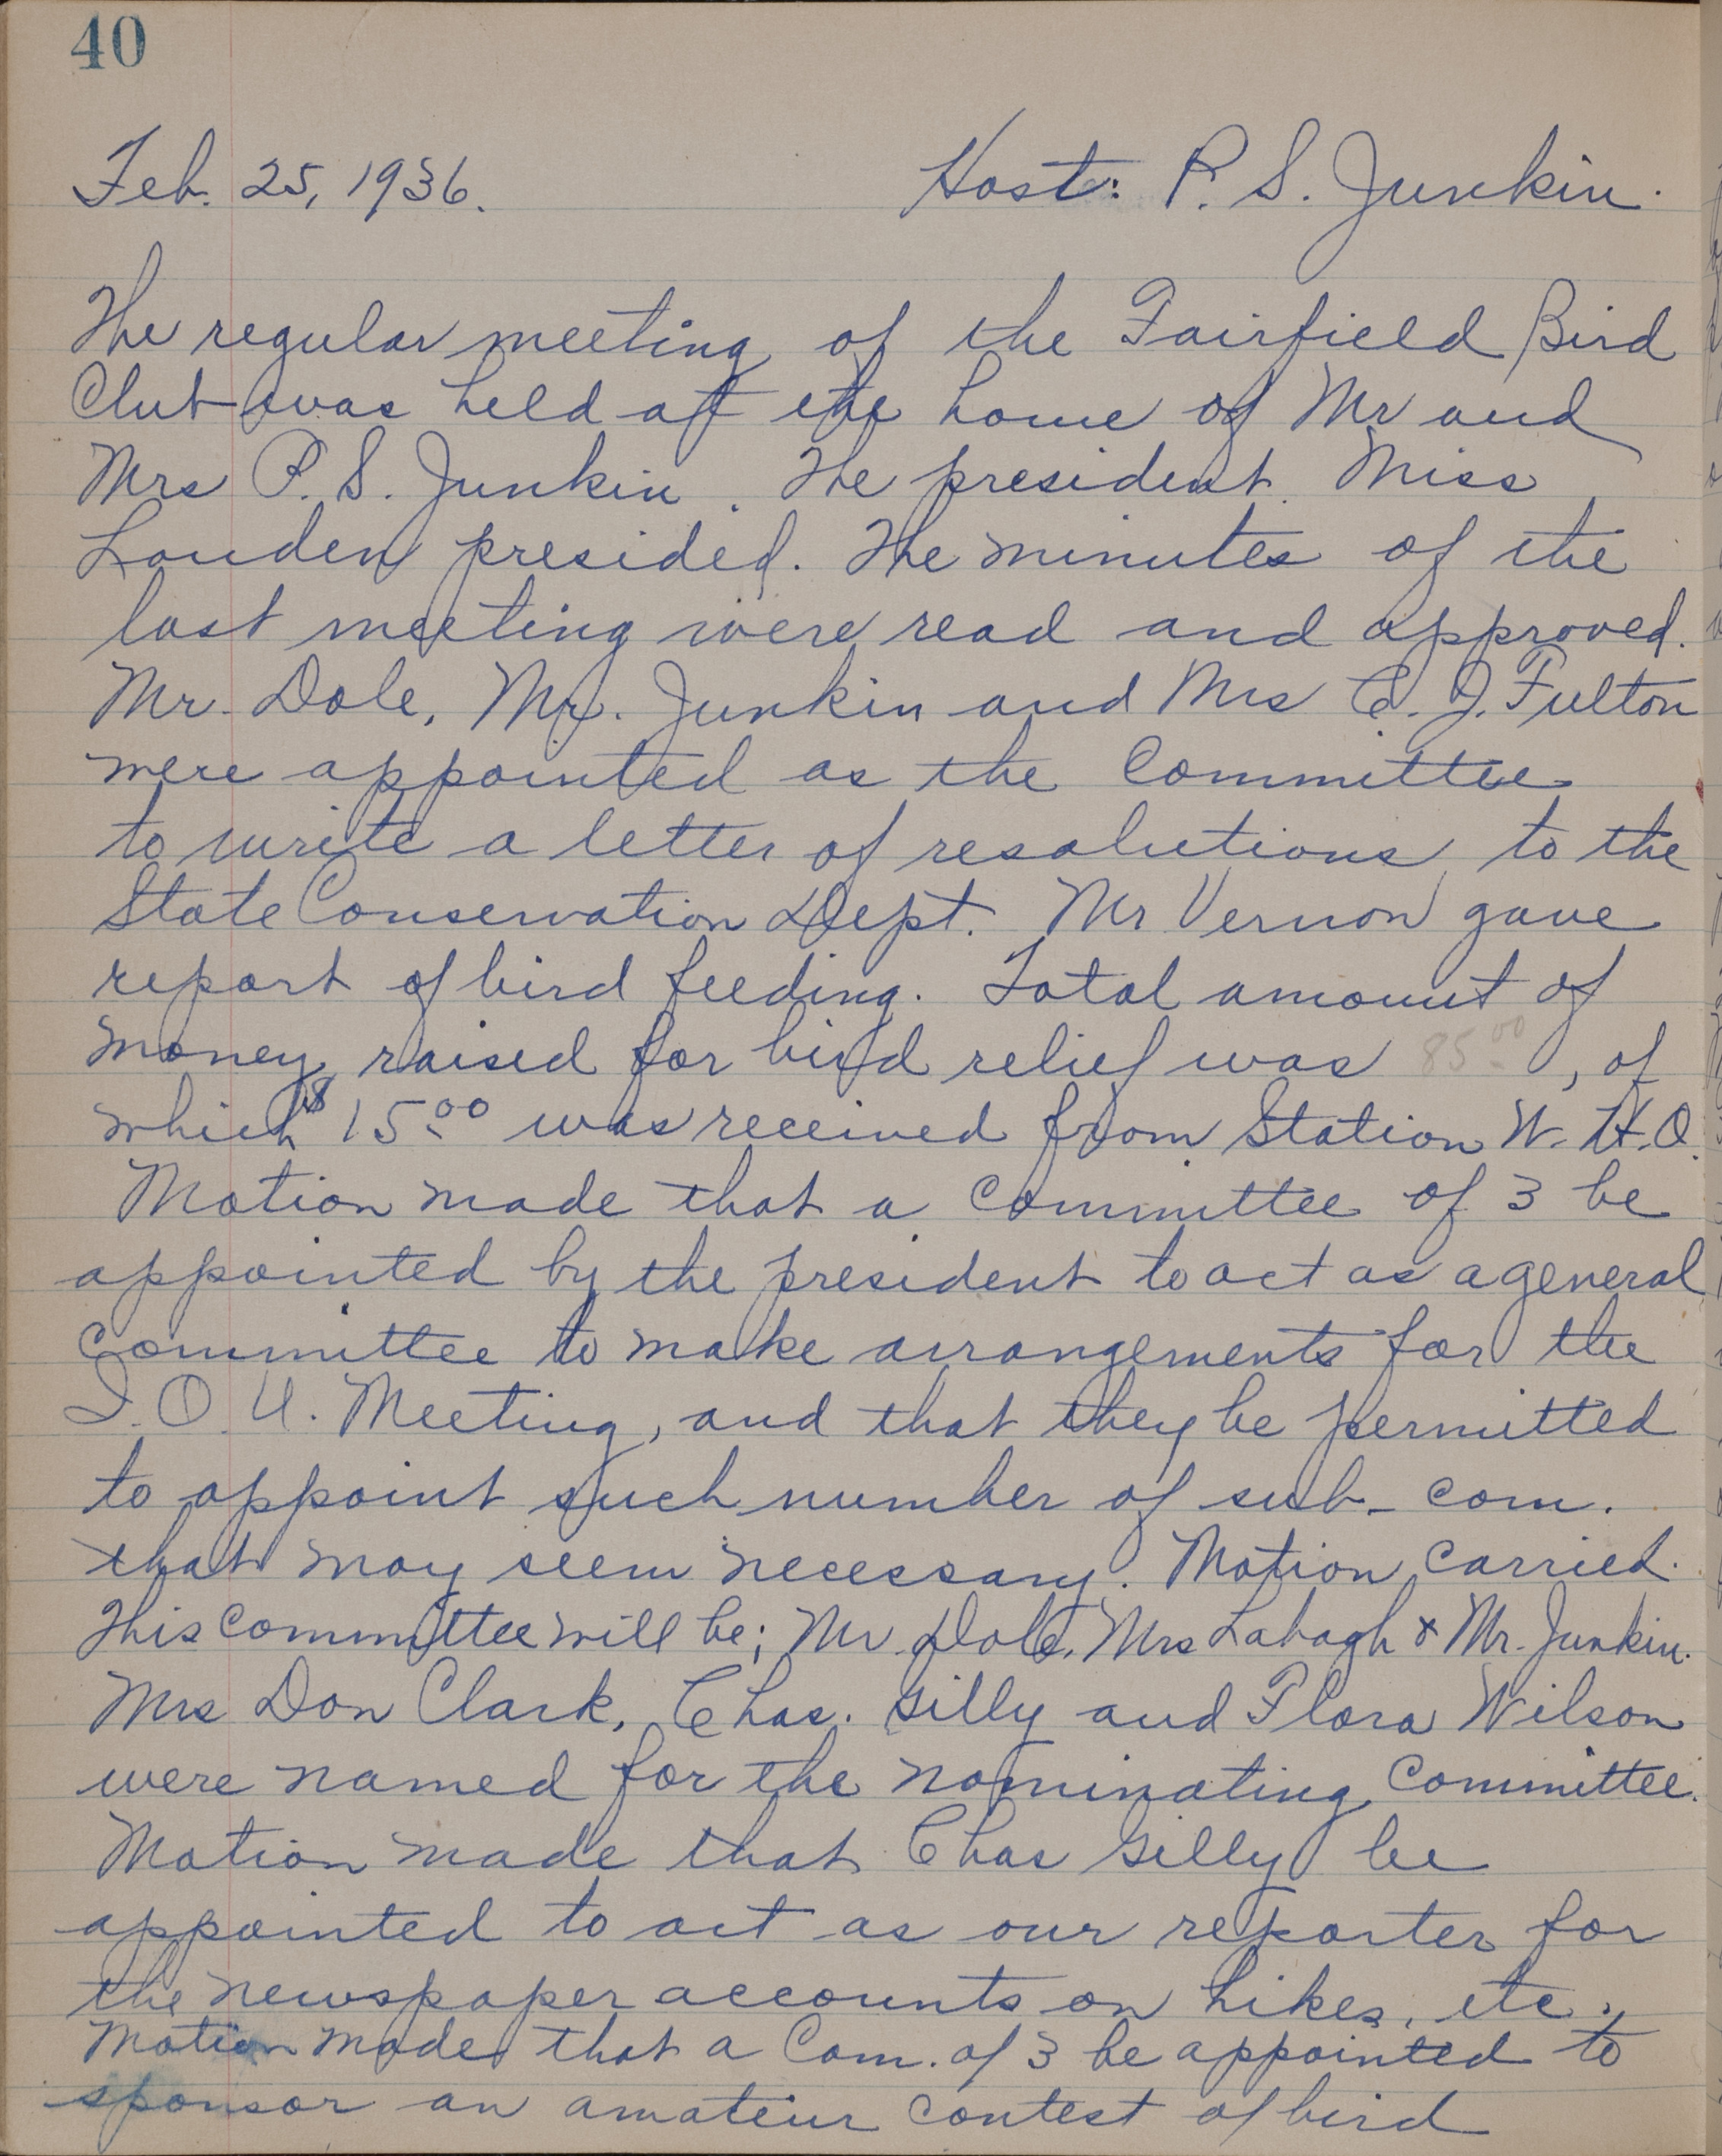 40
Feb. 25, 1936. Host: P. S. Junkin.
The regular meeting of the Fairfield Bird
Club was held at the home of Mr and
Mrs P. S. Junkin. The president Miss
Louden presided. The minutes of the
last meeting were read and approved.
Mr. Dole, Mr. Junkin and Mrs C. J. Fulton
were appointed as the Committee
to write a letter of resolutions to the
State Conservation Dept. Mr Vernon gave
report of bird feeding. Total amount of
money raised for bird relief was 85.00, of
which $15.00 was received from Station W.H.O.
Motion made that a committee of 3 be
appointed by the president to act as a general
committee to make arrangements for the
I.O.U. Meeting, and that they be permitted
to appoint such number of sub-com.
that may seem necessary. Motion carried.
This committee will be; Mr Dole, Mrs Labagh & Mr. Junkin.
Mrs Don Clark, Chas. Gilly and Flora Wilson
were named for the nominating committee.
Motion made that Chas Gilly be
appointed to act as our reporter for
the newspaper accounts on hikes, etc.
Motion made that a Com. of 3 be appointed to
sponsor an amateur contest of bird